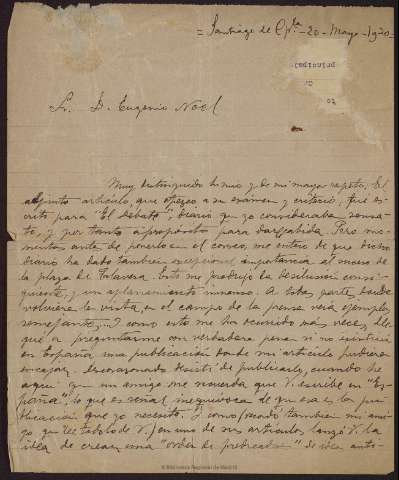 = Santiago de Cpla. - 20 - Mayo - 1920 =
Sr. D. Eugenio Noel
Muy distinguido Sr. mio y de mi mayor respeto: El
adjunto artículo, que ofrezco a su examen y criterio, fué es-
crito para "El debate", diario que yo consideraba sensa-
to, y por tanto apropósito para darle cabida. Pero mo-
mentos antes de ponerlo en el correo, me entero de que dicho
diario ha dado tambien excepcional importancia al suceso de
la plaza de Talavera. Esto me produjo la desilusión consi-
guiente, y un aplanamiento inmenso. A esta parte, donde
volviera la vista, en el campo de la prensa veia ejemplos
semejantes. Y como esto me ha ocurrido más veces, lle-
gué a preguntarme con verdadera pena si no existiria
en España una publicación donde mi artículo pudiera
encajar. Descorazonado desistí de publicarlo, cuando he
aqui que un amigo me recuerda que V. escribe en "Es-
paña", lo que es señal inequivoca de que esa es la pu-
blicación que yo necesito. Y como recordó tambien mi ami-
go que V. en uno de sus artículos lanzó la
idea de crear una "orden de predicadores" de idea anti-
© Biblioteca Regional de Madrid